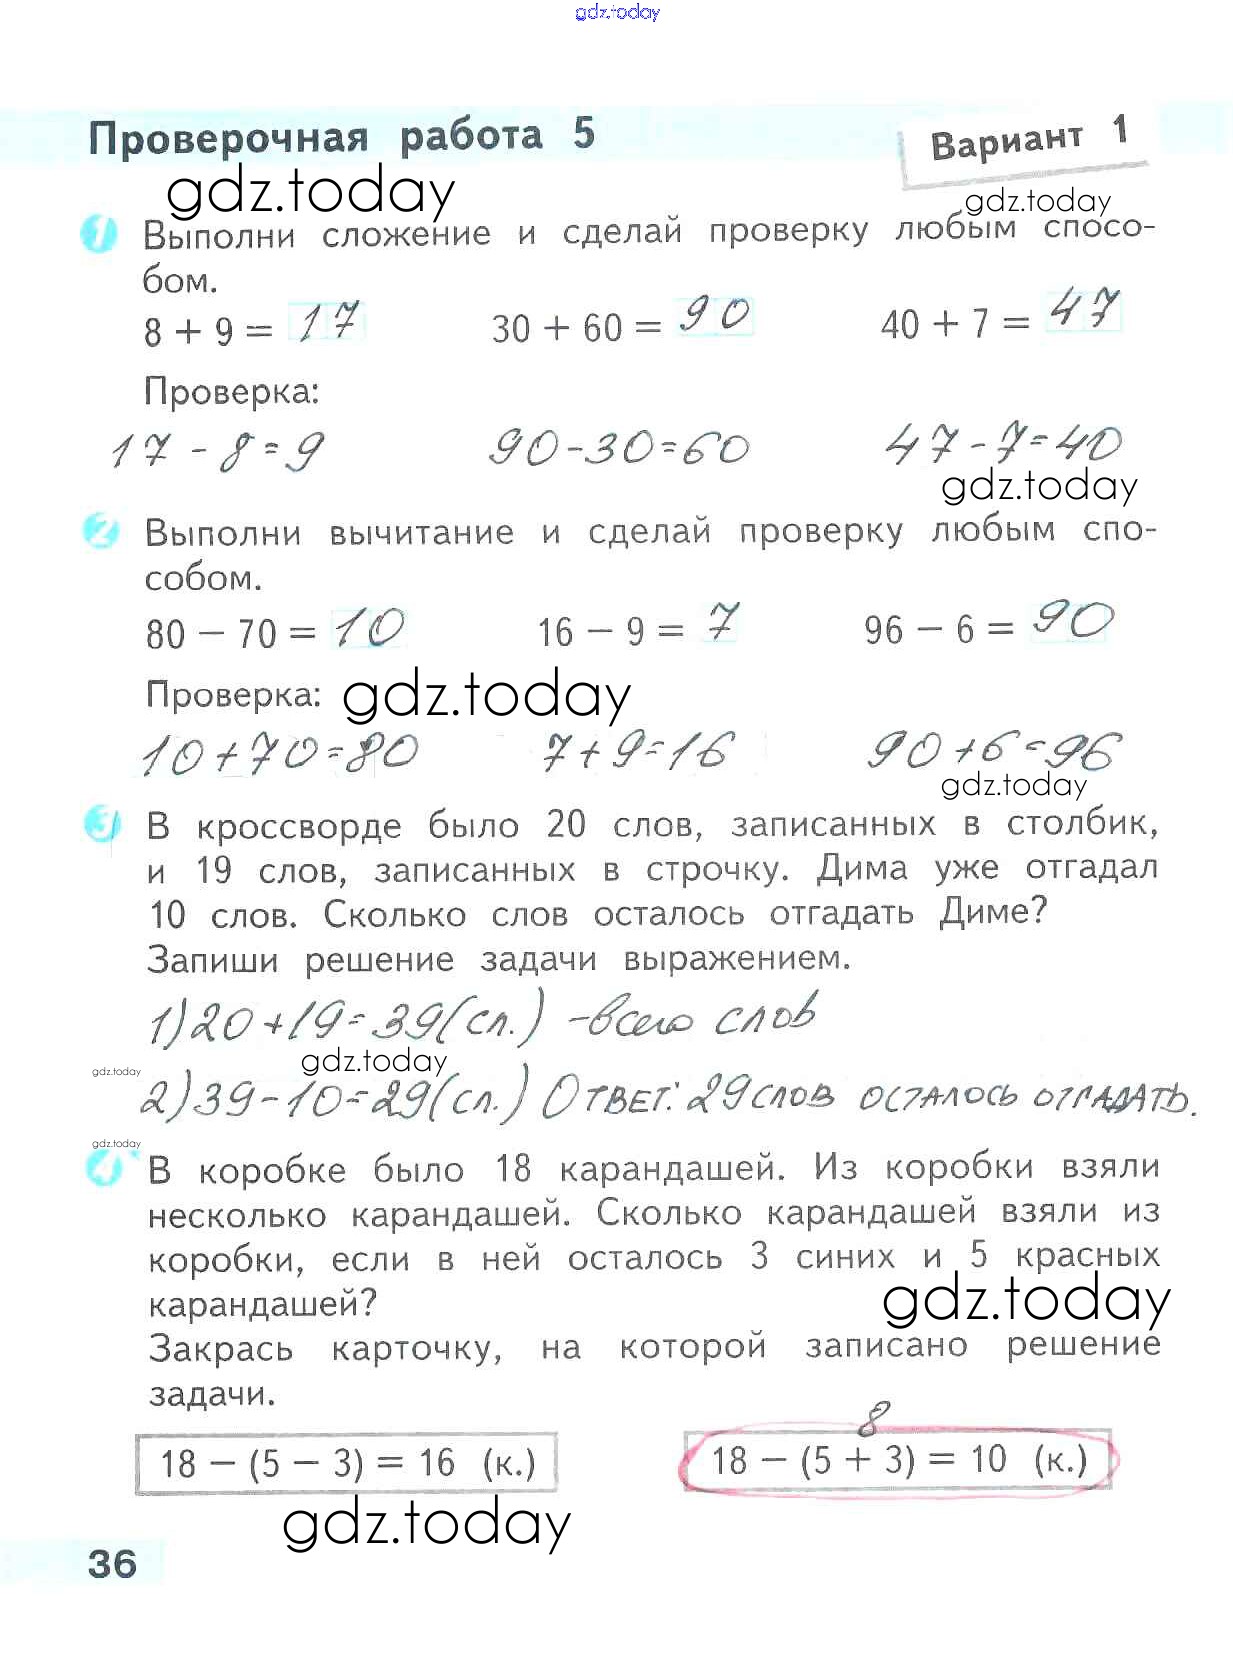 gdz.today
Проверочная работа 5
Вариант 1
gdz.today
gdz.today
1 Выполни сложение и сделай проверку любым спосо-
бом.
8 + 9 = 17 30 + 60 = 90 40 + 7 = 47
Проверка:
17 - 8 = 9 90 - 30 = 60 47 - 7 = 40
gdz.today
2 Выполни вычитание и сделай проверку любым спо-
собом.
80 − 70 = 10 16 − 9 = 7 96 − 6 = 90
Проверка: gdz.today
10 + 70 = 80 7 + 9 = 16 90 + 6 = 96
gdz.today
3 В кроссворде было 20 слов, записанных в столбик,
и 19 слов, записанных в строчку. Дима уже отгадал
10 слов. Сколько слов осталось отгадать Диме?
Запиши решение задачи выражением.
1) 20 + 19 = 39 (сл.) - всего слов
gdz.today
gdz.today
2) 39 - 10 = 29 (сл.) Ответ: 29 слов осталось отгадать.
gdz.today
4 В коробке было 18 карандашей. Из коробки взяли
несколько карандашей. Сколько карандашей взяли из
коробки, если в ней осталось 3 синих и 5 красных
карандашей?
gdz.today
Закрась карточку, на которой записано решение
задачи.
8
18 − (5 − 3) = 16 (к.) 18 − (5 + 3) = 10 (к.)
gdz.today
36